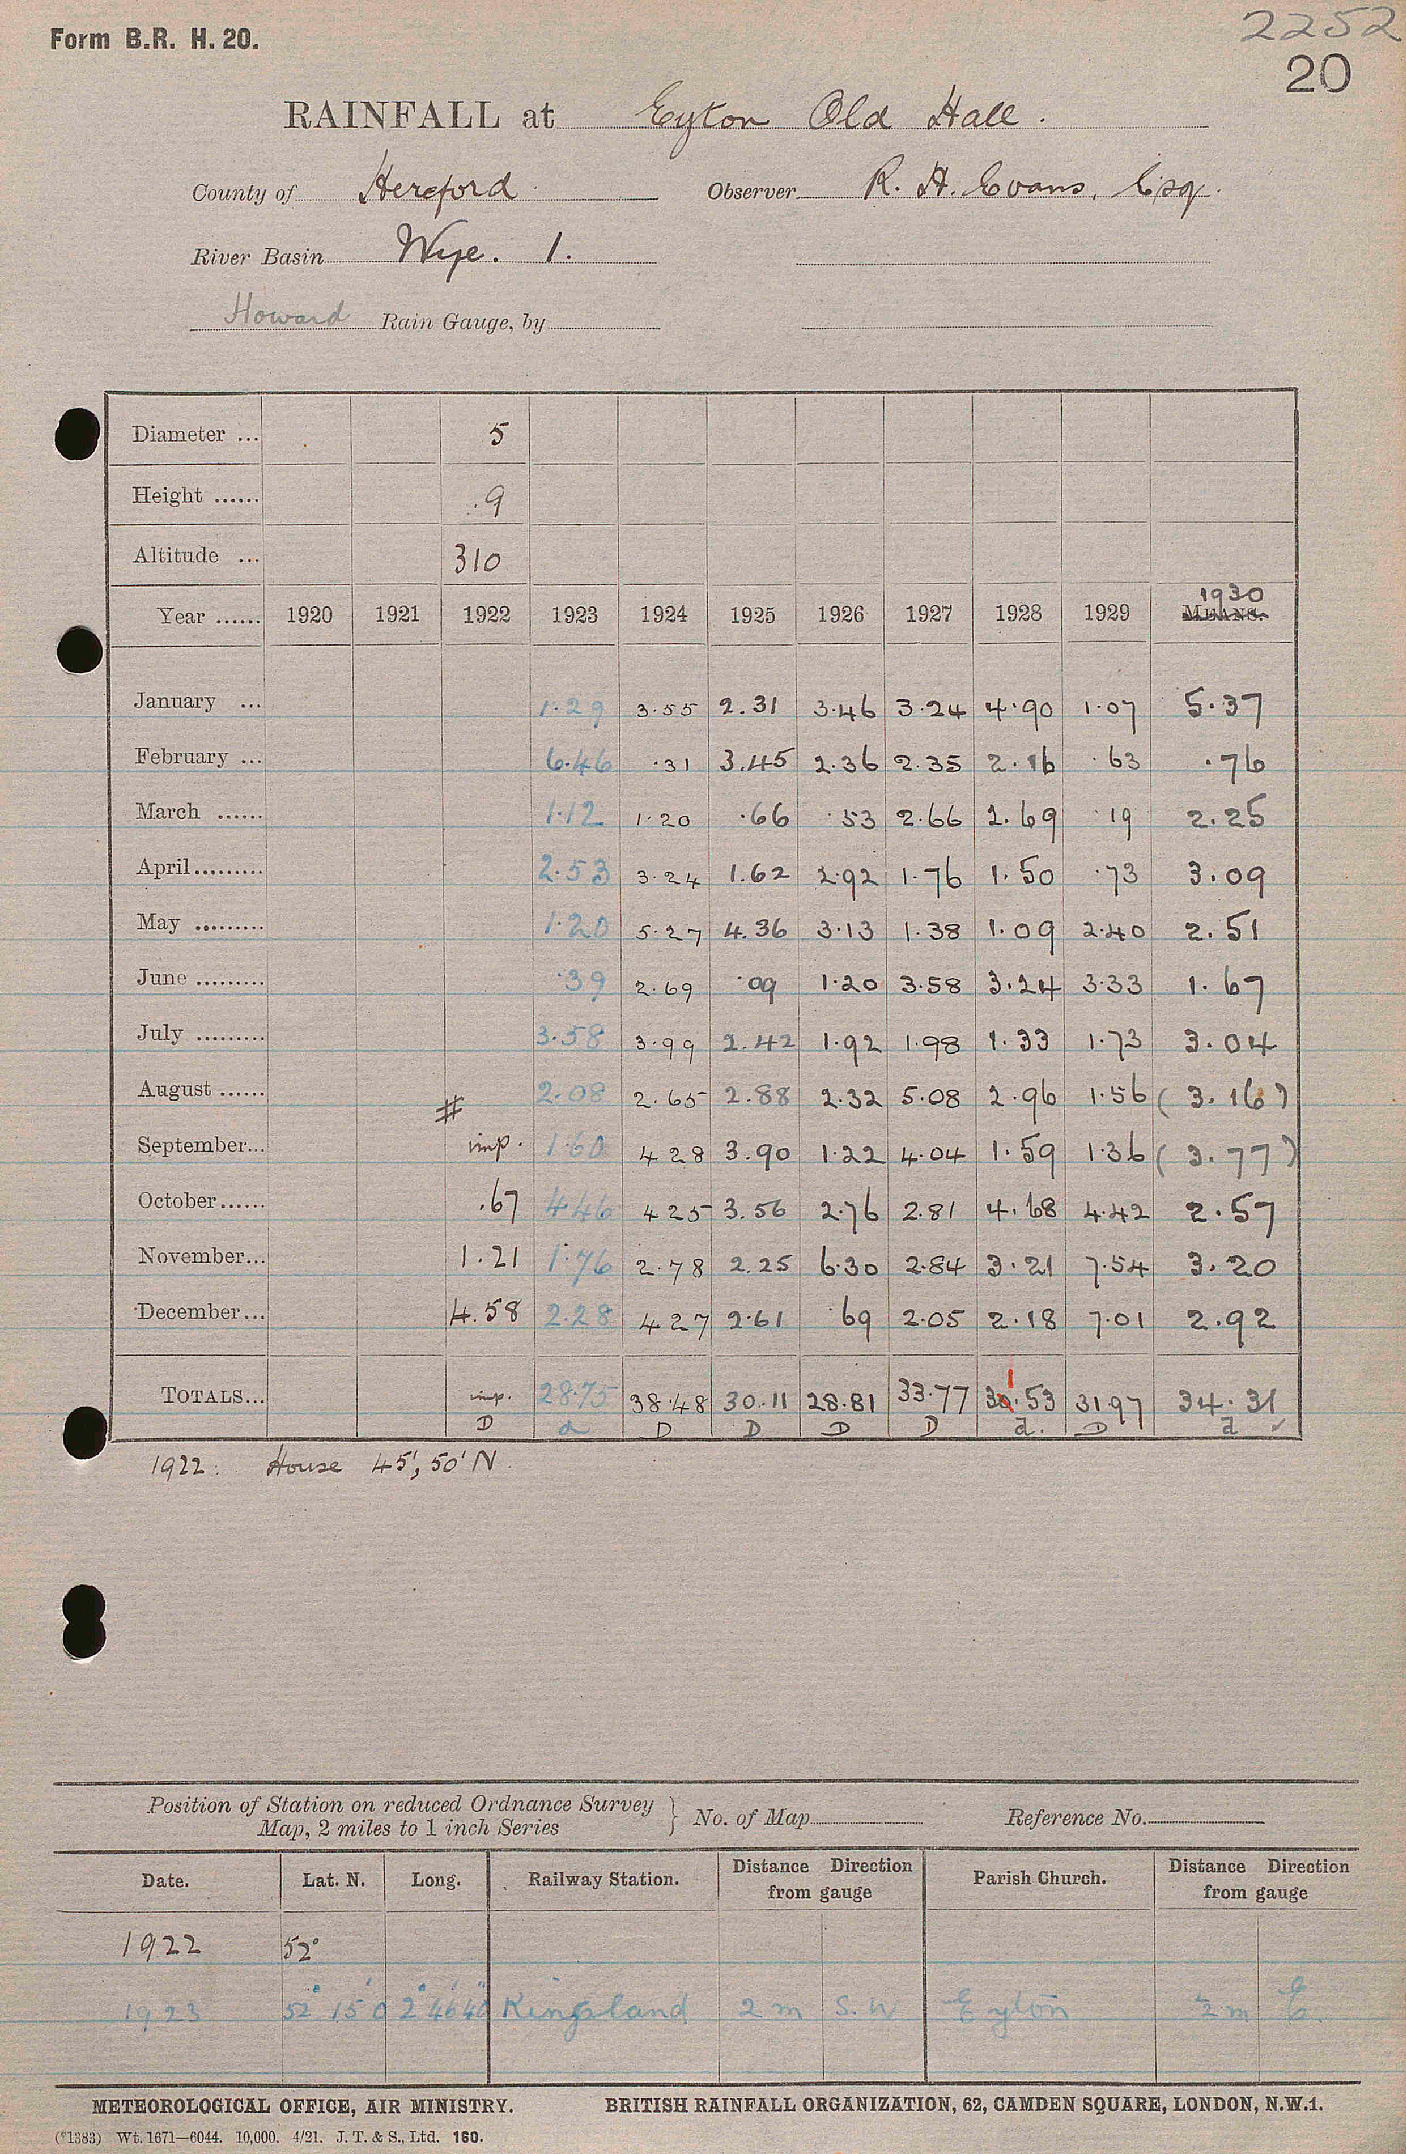 2252
Form B.R. H. 20.
20
RAINFALL at Eyton Old Hall.
County of Hereford Observer R. H. Evans, Esq.
River Basin Wye. 1.
Howard Rain Gauge, by
Diameter ... 5
Height ...... .9
Altitude ... 310
1930
Year ...... 1920 1921 1922 1923 1924 1925 1926 1927 1928 1929 MEANS.
January ... 1.29 3.55 2.31 3.46 3.24 4.90 1.07 5.37
February ... 6.46 .31 3.45 2.36 2.35 2.16 .63 .76
March ...... 1.12 1.20 .66 .53 2.66 2.69 .19 2.25
April ......... 2.53 3.24 1.62 2.92 1.76 1.50 .73 3.09
May ......... 1.20 5.27 4.36 3.13 1.38 1.09 2.40 2.51
June ......... .39 2.69 .09 1.20 3.58 3.24 3.33 1.67
July ......... 3.58 3.99 2.42 1.92 1.98 1.33 1.73 3.04
August ...... 2.08 2.65 2.88 2.32 5.08 2.96 1.56 (3.16)
#
September... imp. 1.60 4 28 3.90 1.22 4.04 1.59 1.36 (3.77)
October...... .67 4.46 4 25 3.56 2.76 2.81 4.68 4.42 2.57
November... 1.21 1.76 2.78 2.25 6.30 2.84 3.21 7.54 3.20
December... 4.58 2.28 4 27 2.61 .69 2.05 2.18 7.01 2.92
1
TOTALS... imp. 28.75 38.48 30.11 28.81 33.77 30.53 31.97 34.31
D a D D D D d. D d ✓
1922: House 45', 50' N.
Position of Station on reduced Ordnance Survey
Map, 2 miles to 1 inch Series } No. of Map Reference No.
Date. Lat. N. Long. Railway Station. Distance Direction from gauge Parish Church. Distance Direction from gauge
1922 52°
1923 52° 15' 0 2° 46' 40" Kingsland 2 m S.W Eyton ½ m E.
METEOROLOGICAL OFFICE, AIR MINISTRY. BRITISH RAINFALL ORGANIZATION, 62, CAMDEN SQUARE, LONDON, N.W.1.
(*1383) Wt. 1671—6044. 10,000. 4/21. J. T. & S., Ltd. 160.